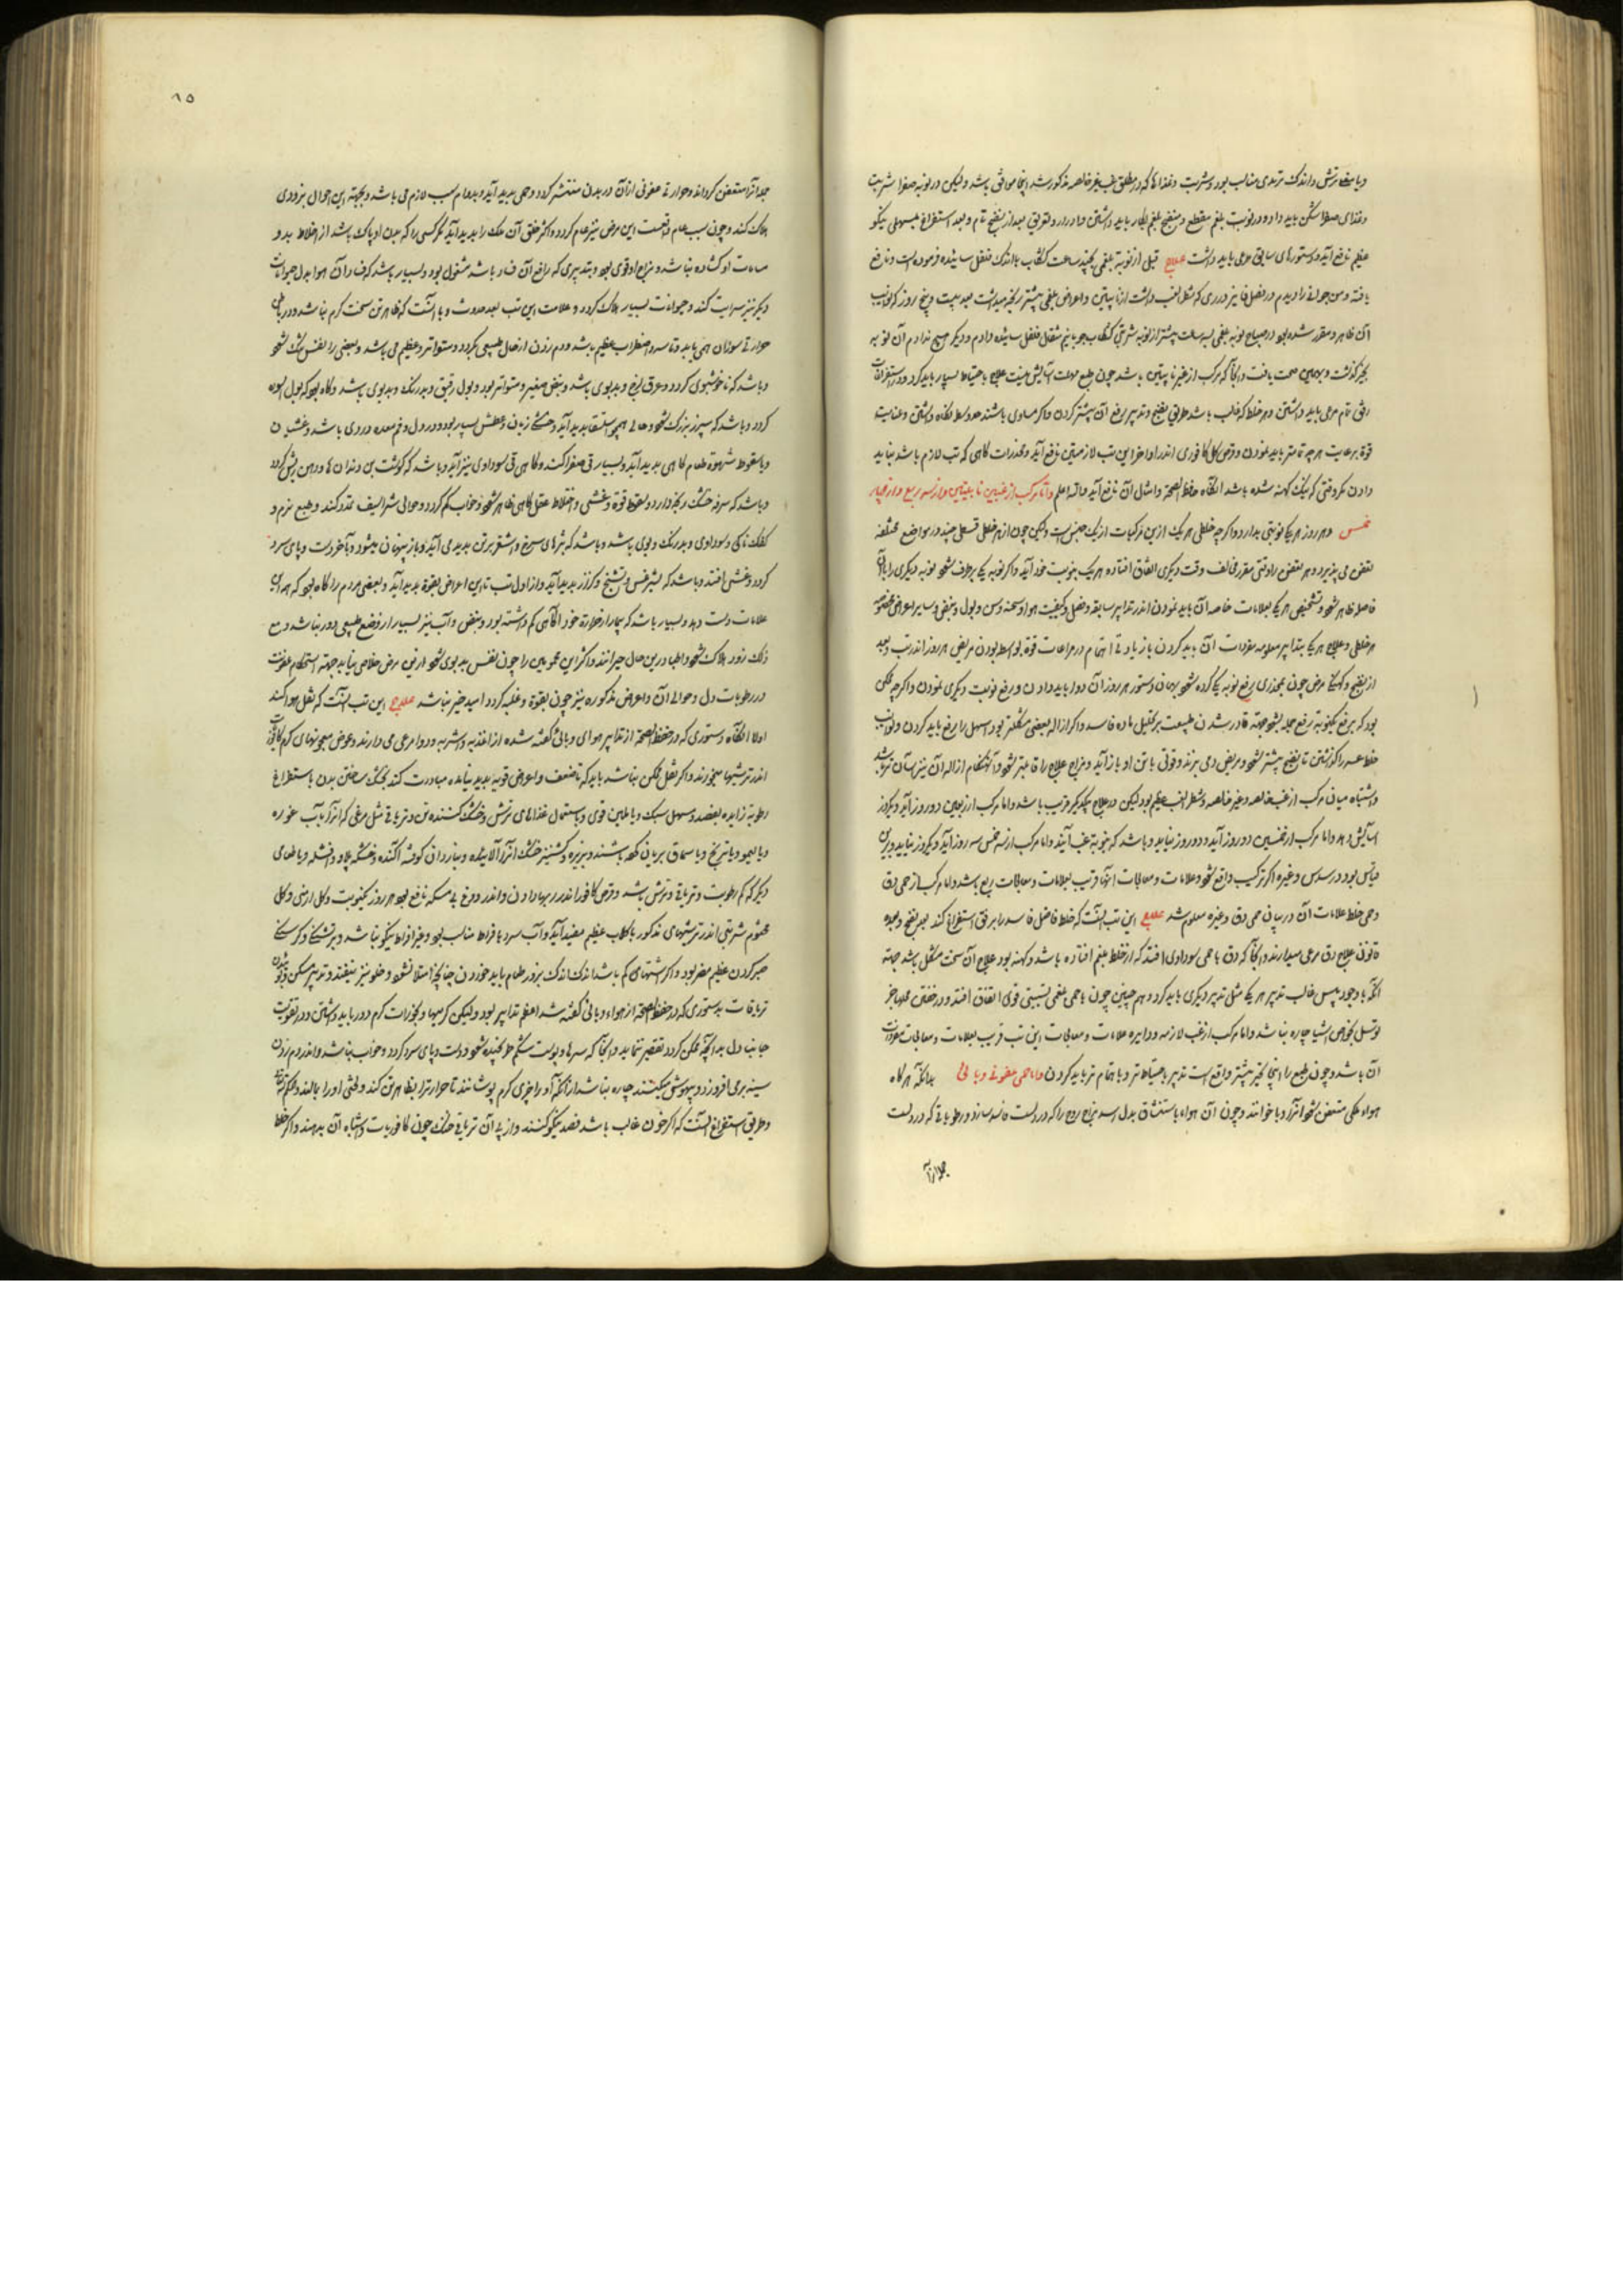 و یا مضا ترش و اندک تربدی مناسب بود و شربت و غذاها که در مطلق غب غیر خالصه مذکور شد اینجا موافق باشد ولیکن در نوبه صفرا شربت
و غذای صفرا شکن باید داد و در نوبت بلغم مقطع و منضج بلغم بکار باید داشتن و ادرار و تعریق بعد از نضج تام و بعد استفراغ بمسهلی نیکو
عظیم نافع آید و دستورهای سابق مرعی باید داشت علاج قبل از نوبه بلغمی بچند ساعت کشکاب با اندک فلفل ساییده فرموده است و نافع
یافته و من جوانی را دیدم در فصل پاییز در ری که شطر الغب داشت از نایبتین و اعراض بلغمی بیشتر رنجه میداشت بعد بیست و پنج روز که نوایب
آن ظاهر و مقرر شده بود در صباح نوبه بلغمی بسه ساعت پیشتر از نوبه شربتی کشکاب جو با نیم مثقال فلفل ساییده دادم و دیگر هیچ ندادم آن نوبه
بخیر گذشت و بهمین صحت یافت و آنجا که مرکب از غیر نایبتین باشد چون طبع مهلت آسایش نیست علاج باحتیاط بسیار باید کرد و در استفراغات
رفق تمام مرعی باید داشتن و هر خلط که غالب باشد طریق نضج و تدبیر برفع آن بیشتر کردن و اگر مساوی باشند حد وسط نگاه داشتن و عنایت
قوة برعایت هر چه تمامتر باید نمودن و قرص گل کافوری اندر اواخر این تب لازمتین نافع آید و مخدرات گاهی که تب لازم باشد نباید
دادن مگر وقتی که نیک کهنه شده باشد آنگاه حفظ الصحة و امثال آن نافع آید والله اعلم و اما مرکب از غبین نایبتین و از سه ربع و از چهار
خمس و هر روز هر یک نوبتی بدارد و اگر چه خلطی هر یک ازین مرکبات از یک جنس است ولیکن چون از هر خلطی قسطی چند در مواضع مختلفه
تعفن می پذیرد و هر تعفن را وقتی مقرر مخالف وقت دیگری اتفاق افتاده هر یک بنوبت خود آید و اگر نوبه یکی برطرف شود نوبه دیگری را با آن
فاصله ظاهر شود و تشخیص هر یکی بعلامات خاصه آن باید نمودن اندر تدابیر سابقه و فصل و کیفیت هوا و سحنه و سن و بول و نبض و سایر اعراض مخصوصه
هر خلطی و علاج هر یک بتدابیر معلومه مفردات آن باید کردن با زیادتی اهتمام در مراعات قوة بواسطه بودن مریض هر روز اندر تب و بعد
از نضج و کهنگی مرض چون بمخدری رفع نوبه یکی کرده شود بهمان دستور هر روز آن دوا باید دادن و رفع نوبت دیگری نمودن و اگر چه ممکن
بود که برفع یکنوبة رفع جمله بشود بجهة قادر شدن طبیعت بر تحلیل ماده فاسد و اگر ازاله بعضی مشکلتر بود اسهل را رفع باید کردن و نوایب
خلط عسر را گذاشتن تا نضج بیشتر شود و مریض دمی بزند و قوتی با تن او باز آید و مزاج علاج را قابلتر شود و آنهنگام ازاله آن نیز بآسان تر باشد
و اشتباه میان مرکب از غب خالصه و غیر خالصه و شطر الغب عظیم بود لیکن در علاج بیکدیگر قریب باشد و اما مرکب از ربعین دو روز آید و یکروز
آسایش دهد و اما مرکب از خمسین دو روز آید و دو روز نیاید و باشد که بنوبة غب آیند و اما مرکب از سه خمس سه روز آید و یکروز نیاید و برین
قیاس بود در سدس و غیره اگر ترکیب واقع شود و علامات و معالجات اینها قریب بعلامات و معالجات ربع باشد و اما مرکب از حمی دق
و حمی خلط علامات آن در بیان حمی دق و غیره معلوم شد علاج این تب آنست که خلط فاضل فاسد را برفق استفراغ کند بعد نضج و بعده
قانون علاج دق مرعی میدارند و آنجا که دق با حمی سوداوی افتد که از خلط بلغم افتاده باشد و کهنه بود علاج آن سخت مشکل باشد بجهة
آنکه با وجود یبس غالب تدبیر هر یک مثل تدبیر دیگری باید کرد و هم چنین چون با حمی بلغمی نسبتی قوی اتفاق افتد و در خفتن محلها جز
توسل بخواص اشیا چاره نباشد و اما مرکب از غب لازمه و دایره علامات و معالجات این تب قریب بعلامات و معالجات مفردات
آن باشد و چون طبع را اینجا تحیر بیشتر واقع است تدبیر باحتیاط تر و با اهتمام تر باید کردن و اما حمی عفونی وبائی بدانکه هرگاه
هواء ملکی متعفن شود آنرا وبا خوانند و چون آن هواء باستنشاق بدل رسد مزاج روح را که در دلست فاسد سازد و رطوباتی که در دلست
جمله آنرا
۱۵
جمله آنرا متعفن گرداند و حرارتی عفونی از آن در بدن منتشر گردد و حمی پدید آید و بدوام سبب لازم می باشد و بجهة این احوال بزودی
هلاک کند و چون سبب عام و اقعست این مرض نیز عام گردد و اکثر خلق آن ملک را پدید آید مگر کسی را که بدن او پاک باشد از اخلاط بد و
مسامات او گشاده نباشد و مزاج او قوی بود و بتدبیری که رافع آن فساد باشد مشغول بود و بسیار باشد که فساد آن هوا بدل حیوانات
دیگر نیز سرایت کند و حیوانات بسیار هلاک گردد و علامت این تب بعد حدوث وبا آنست که ظاهر تن سخت گرم نباشد و در باطن
حرارتی سوزان همی یابد و تاسه و اضطراب عظیم باشد و دم زدن از حال طبیعی بگردد و متواتر و عظیم می باشد و بعضی را نفس تنگ شود
و باشد که ناخوشبوی گردد و عرق لزج و بدبوی باشد و نبض صغیر و متواتر بود و بول رقیق و بدرنگ و بدبوی باشد و گاه بود که بول اسود
گردد و باشد که سپرز بزرگ شود و حالی همچو استسقا پدید آید و خشکی زبان و عطش بسیار بود و در دل و فم معده دردی باشد و غشیان
و یا سقوط شهوة طعام گاهی پدید آید و بسیار قی صفرا کند و گاهی قی سوداوی نیز آید و باشد که گوشت بن دندانها و دهن ریش گردد
و باشد که سرفه خشک رنجه دارد و سقوط قوة و غشی و اختلاط عقل گاهی ظاهر شود و خواب کم گردد و حوالی شراسیف تمدد کند و طبع نرم و
کفک ناک و سوداوی و بدرنگ و بوی باشد و باشد که بثرهای سرخ و اشقر بر تن پدید می آید و باز پنهان میشود و بآخر دست و پای سرد
گردد و غشی افتد و باشد که لیثرغس و تشنج و کزاز پدید آید و از اول تب تا این اعراض بقوة پدید آید و بعضی مردم را گاه بود که همه این
علامات دست دهد و بسیار باشد که بیمار از حرارة خود آگاهی کم داشته بود و نبض و آب نیز بسیار از وضع طبیعی دور نباشد و مع
ذلک زود هلاک شود و اطبا درین حال حیرانند و اکثر این محمومین را چون نفس بدبوی شود ازین مرض خلاص نیابد بجهة استحکام عفونت
در رطوبات دل و حوالی آن و اعراض مذکوره نیز چون بقوة و غلبه گردد امید خیر نباشد علاج این تب آنست که نقل هوا کنند
اولا آنگاه دستوری که در حفظ الصحة از تدابیر هوای وبائی گفته شده از اغذیه و اشربه و دوا مرعی می دارند و عوض معجونهای گرم کافوریات
اندر ترشیها میخورند و اگر نقل ممکن نباشد باید که تا ضعف و اعراض قویه پدید نیامده مبادرت کند بخشک ساختن بدن باستفراغ
رطوبة زایده بفصد و مسهل سبک و یا ملین قوی و باستعمال غذاهای ترش و خشک کننده تن و تریاقی مثل مرغی که آنرا بآب غوره
و یا لیمو و یا ترنج و یا سماق بریان کرده باشند و بزیره و کشنیز خشک آنرا آلائیده و بناردان گوشه آکنده و خشکه پلاو و افشله و یا طعامی
دیگر که کم رطوبت و تریاقی و ترش باشد و قرص کافور اندر ربها دادن و اندر دوغ بی مسکه نافع بود هر روز یکنوبت و گل ارمنی و گل
مختوم شربتی اندر ترشیهای مذکور با گلاب عظیم مفید آید و آب سرد بافراط مناسب بود و غیر افراط نیکو نباشد و بر تشنگی و گرسنگی
صبر کردن عظیم مضر بود و اگر اشتهای کم باشد اندک اندک بزور طعام باید خوردن چنانچه امتلا نشود و خلو نیز نیفتد و تدبیر مسکن و بودن
تریاقات بدستوری که در حفظ الصحة از هواء وبائی گفته شد اعظم تدابیر بود ولیکن گرمیها و بخورات گرم دور باید داشتن و در تقویت
جانب دل بدانچه ممکن گردد تقصیر ننماید و آنجا که سرها و پوست شکم طرنجیده شود و دست و پای سرد گردد و خواب نباشد و اندر دم زدن
سینه برمی افرازد و بیهوش میکنند چاره نباشد از آنکه او را چیزی گرم پوشانند تا حرارت را بظاهر تن کند و لختی او را بمالند و محکم
و طریق استفراغ آنست که اگر خون غالب باشد فصد نیکو کنند و از پی آن تریاقی خنک چون کافوریات و اشباه آن بدهند و اگر خلط